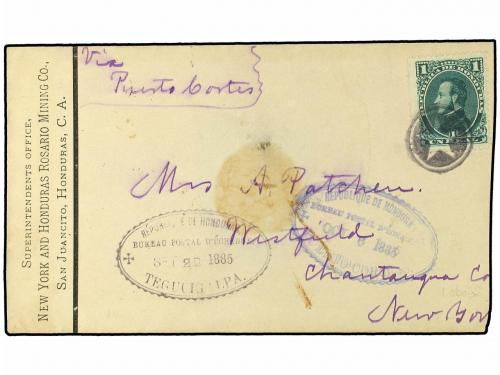 SUPERINTENDENTS OFFICE,
NEW YORK AND HONDURAS ROSARIO MINING CO.,
SAN JUANCITO, HONDURAS, C. A.
Via
Puerto Cortes
1
REPUBLICA DE HONDURAS
UN
Mrs A. Patchen.
Westfield
Chautauqua Co
New Yor
BUREAU POSTAL
22 1885
TEGUCIGALPA.
REPUBLIQUE DE HONDURAS
BUREAU POSTAL
6 1885